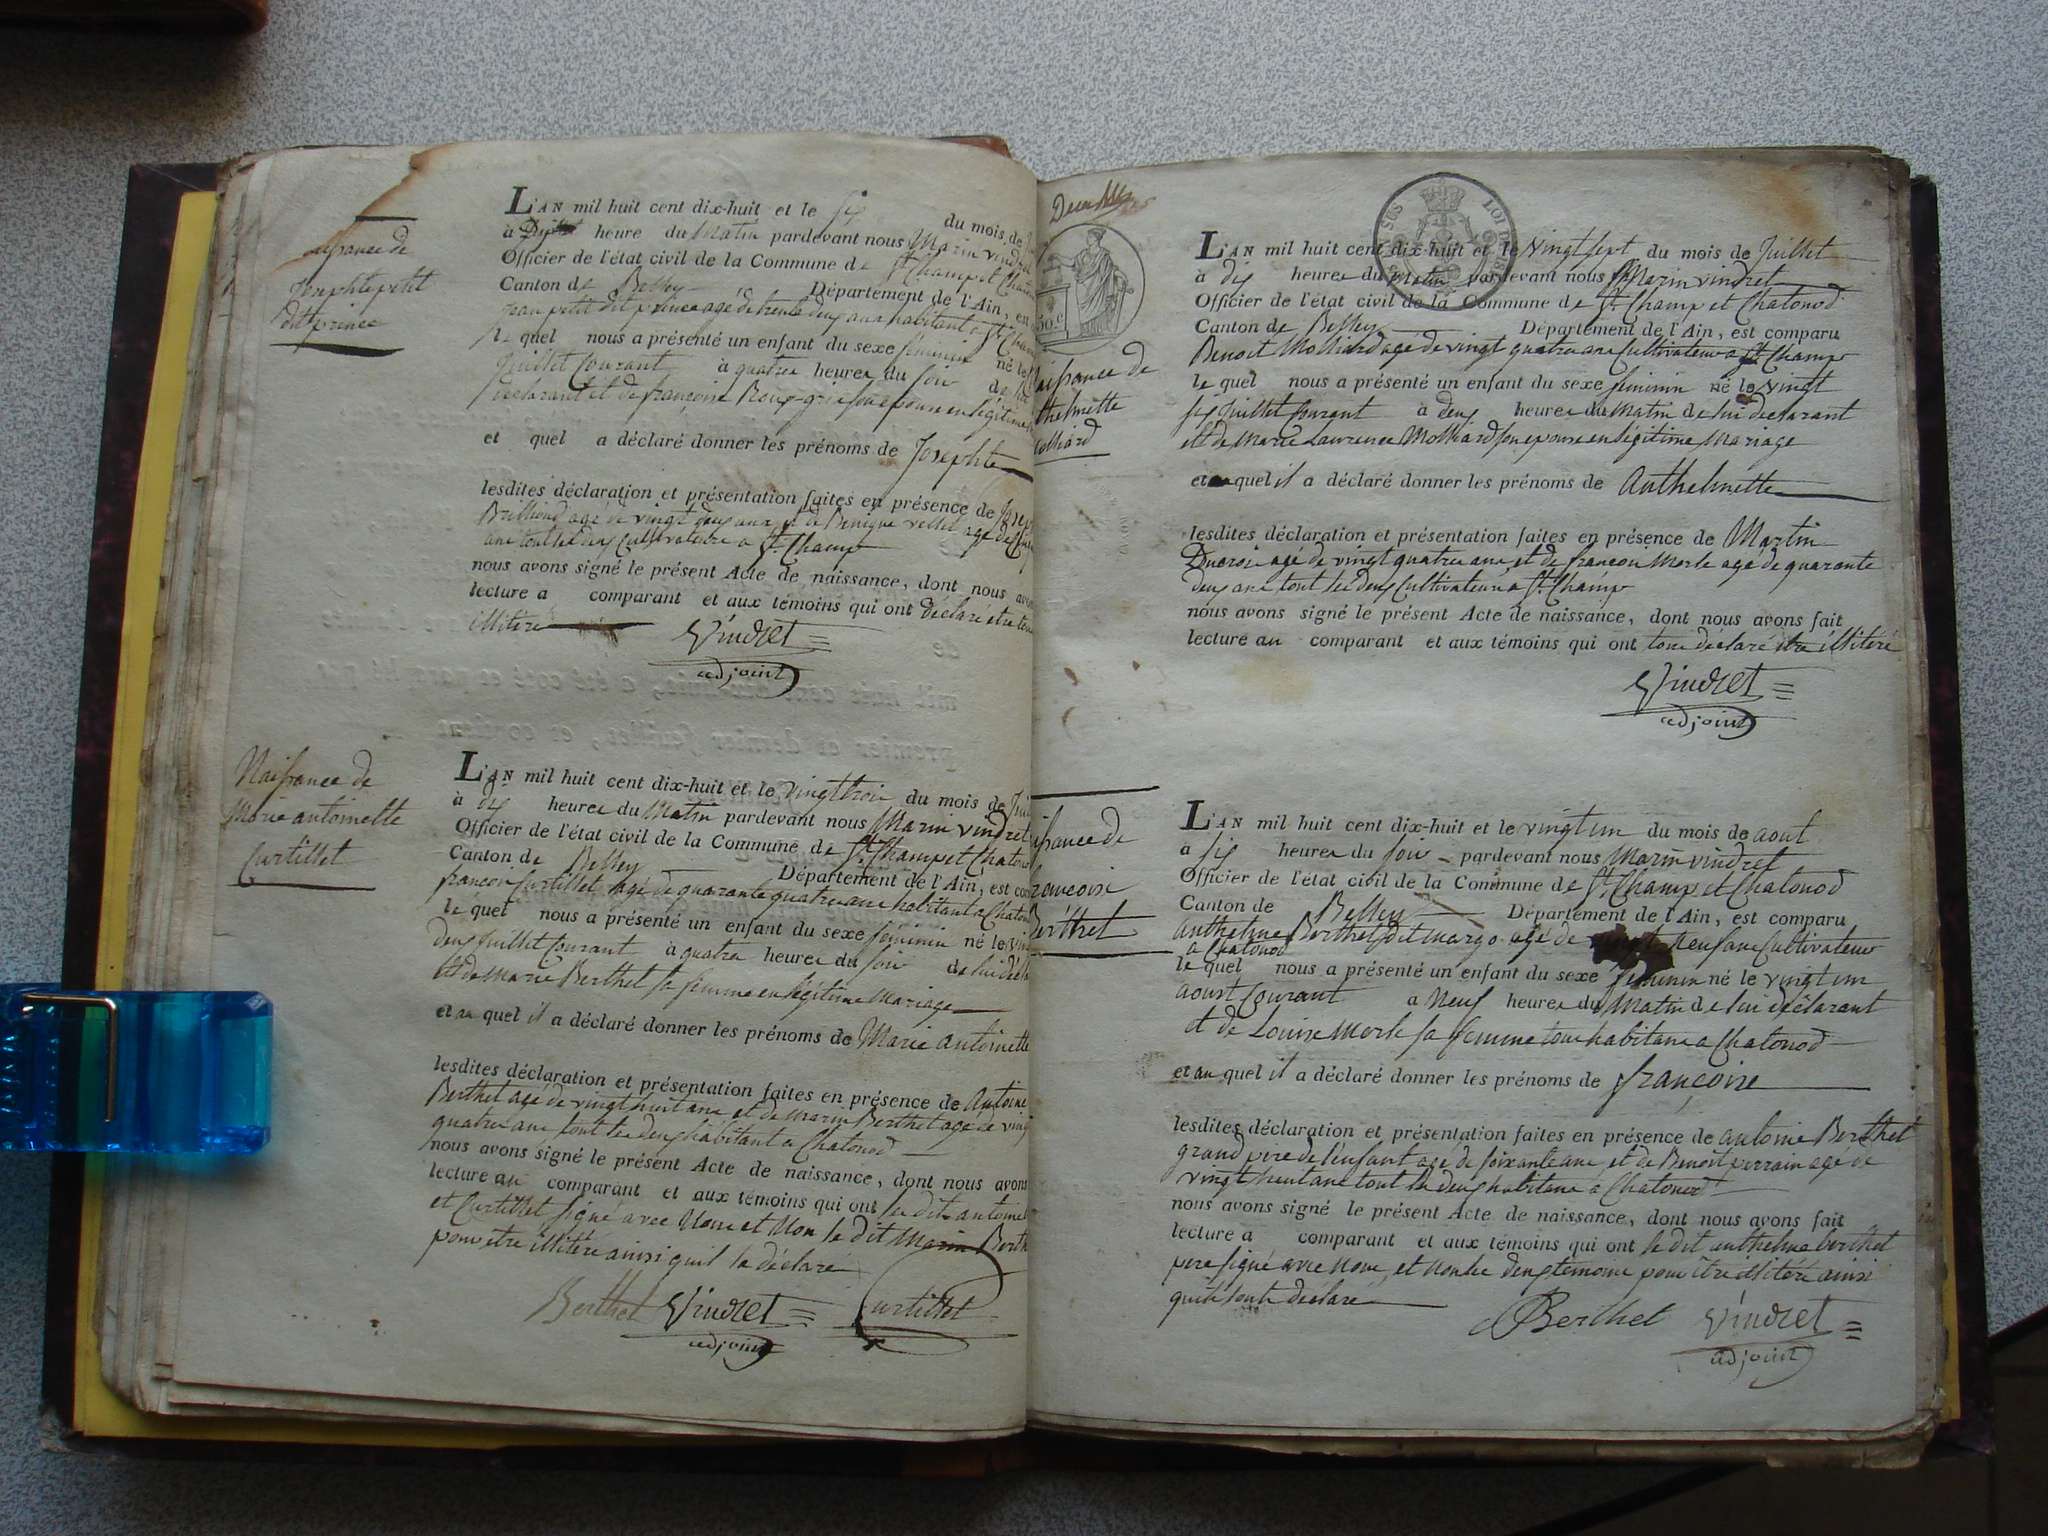 naissance de
Josephte petit
dit prince
L'AN mil huit cent dix-huit et le six du mois de
à Dix heure du Matin pardevant nous Marin vindret
Officier de l'état civil de la Commune de St Champ et Chaton
Canton de Belley Département de l'Ain, en
jean petit dit prince agé de trente deux ans habitant a St Cham
le quel nous a présenté un enfant du sexe féminin né le
Juillet Courant à quatre heures du soir de lui
déclarant et de françoise Roux son epouse en légitime
et quel a déclaré donner les prénoms de Josephte
lesdites déclaration et présentation faites en présence de
agé de vingt deux ans et de Benigne vellet agé de
ans tout les deux Cultivateurs a St Champ
nous avons signé le présent Acte de naissance, dont nous avon
lecture a comparant et aux témoins qui ont déclaré etre
illiteré
Vindret
adjoint
Naissance de
Marie antoinette
Curtillet
L'AN mil huit cent dix-huit et le vingt trois du mois de Jui
à dix heures du Matin pardevant nous Marin vindret
Officier de l'état civil de la Commune de St Champ et Chatono
Canton de Belley Département de l'Ain, est com
francois Curtillet agé de quarante quatre ans habitant a Chaton
le quel nous a présenté un enfant du sexe féminin né le vin
deux Juillet Courant à quatre heures du soir de lui décla
et de Marie Berthet sa femme en légitime Mariage
et au quel il a déclaré donner les prénoms de Marie antoinette
lesdites déclaration et présentation faites en présence de Antoine
Berthet agé de vingt huit ans et de Marin Berthet agé de vingt
quatre ans tout les deux habitant a Chatonod
nous avons signé le présent Acte de naissance, dont nous avons
lecture au comparant et aux témoins qui ont les dits antoine
et Curtillet signé avec Nous et Non le dit Marin Berth
pour etre illiteré ainsi quil la déclaré
Berthet Vindret Curtillet
adjoint
Deux
50.c
naissance de
thelmette
olliard
L'AN mil huit cent dix-huit et le vingt sept du mois de Juillet
à dix heures du Matin pardevant nous Marin vindret
Officier de l'état civil de la Commune de St Champ et Chatonod
Canton de Belley Département de l'Ain, est comparu
Benoit Molliard agé de vingt quatre ans Cultivateur a St Champ
le quel nous a présenté un enfant du sexe féminin né le vingt
six Juillet Courant à deux heures du Matin de lui declarant
et de Marie Laurence Molliard son epouse en légitime Mariage
et au quel il a déclaré donner les prénoms de Anthelmette
lesdites déclaration et présentation faites en présence de Martin
Ducroi agé de vingt quatre ans et de francois Merle agé de quarante
deux ans tout les deux Cultivateurs a St Champ
nous avons signé le présent Acte de naissance, dont nous avons fait
lecture au comparant et aux témoins qui ont tous déclaré etre illiteré
Vindret
adjoint
issance de
rancoise
Berthet
L'AN mil huit cent dix-huit et le vingt un du mois de aout
à six heures du soir pardevant nous Marin vindret
Officier de l'état civil de la Commune de St Champ et Chatonod
Canton de Belley Département de l'Ain, est comparu
anthelme Berthet dit margo agé de neuf ans Cultivateur
a Chatonod
le quel nous a présenté un enfant du sexe féminin né le vingt un
aoust Courant à Neuf heures du Matin de lui déclarant
et de Louise Merle sa femme tous habitans a Chatonod
et au quel il a déclaré donner les prénoms de françoise
lesdites déclaration et présentation faites en présence de antoine Berthet
grand pere de l'enfant agé de soixante ans et de Benoit perrain agé de
vingt huit ans tout les deux habitans a Chatonod
nous avons signé le présent Acte de naissance, dont nous avons fait
lecture a comparant et aux témoins qui ont le dit anthelme berthet
pere signé avec Nous, et Non les deux temoins pour etre illiteré ainsi
quils lont declare
Berthet Vindret
adjoint